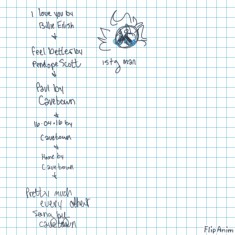 I love you by
Billie Eilish
Feel better by
Penelope Scott
Paul by
Cavetown
16-04-16 by
Cavetown
Home by
Cavetown
Pretty much
every other
song by
Cavetown
istg man
FlipAnim